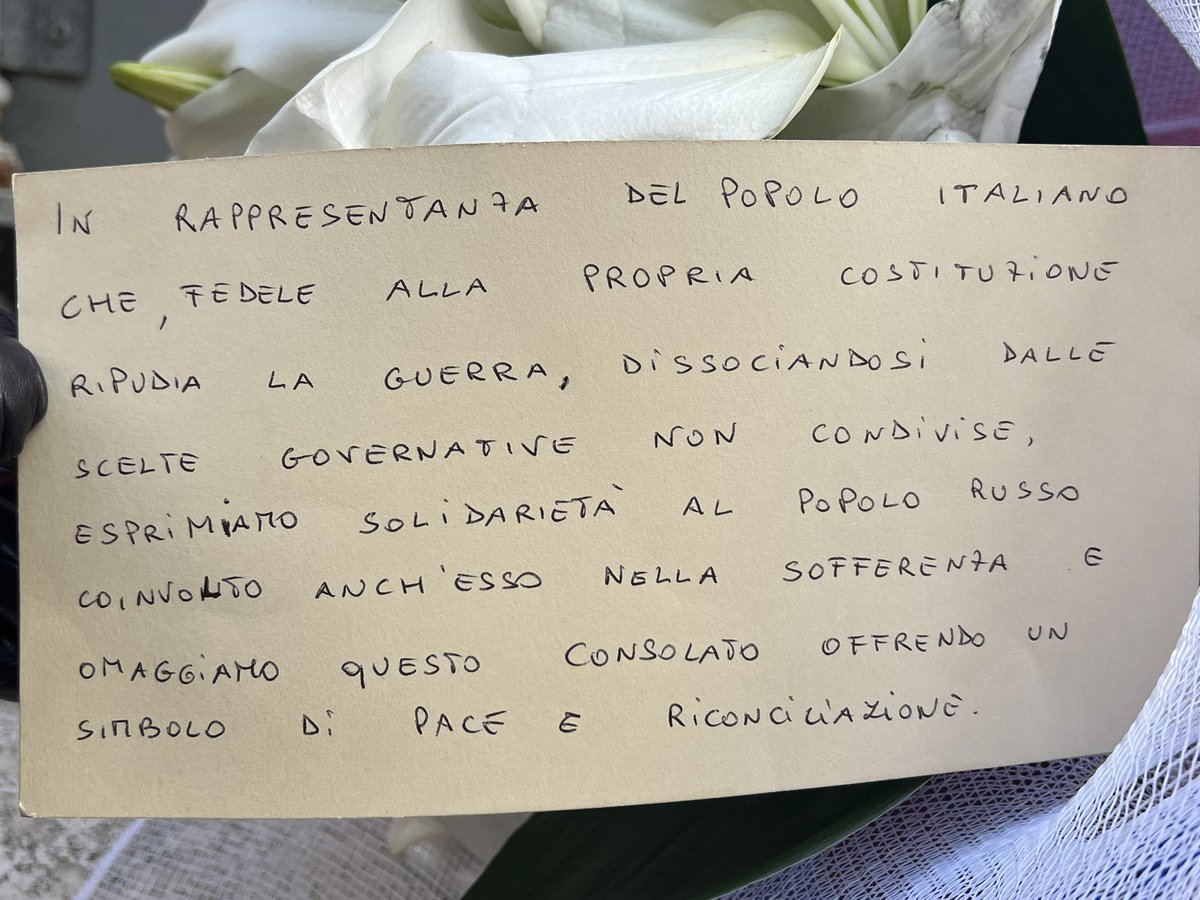 IN RAPPRESENTANZA DEL POPOLO ITALIANO
CHE, FEDELE ALLA PROPRIA COSTITUZIONE
RIPUDIA LA GUERRA, DISSOCIANDOSI DALLE
SCELTE GOVERNATIVE NON CONDIVISE,
ESPRIMIAMO SOLIDARIETÀ AL POPOLO RUSSO
COINVOLTO ANCH'ESSO NELLA SOFFERENZA E
OMAGGIAMO QUESTO CONSOLATO OFFRENDO UN
SIMBOLO DI PACE E RICONCILIAZIONE.